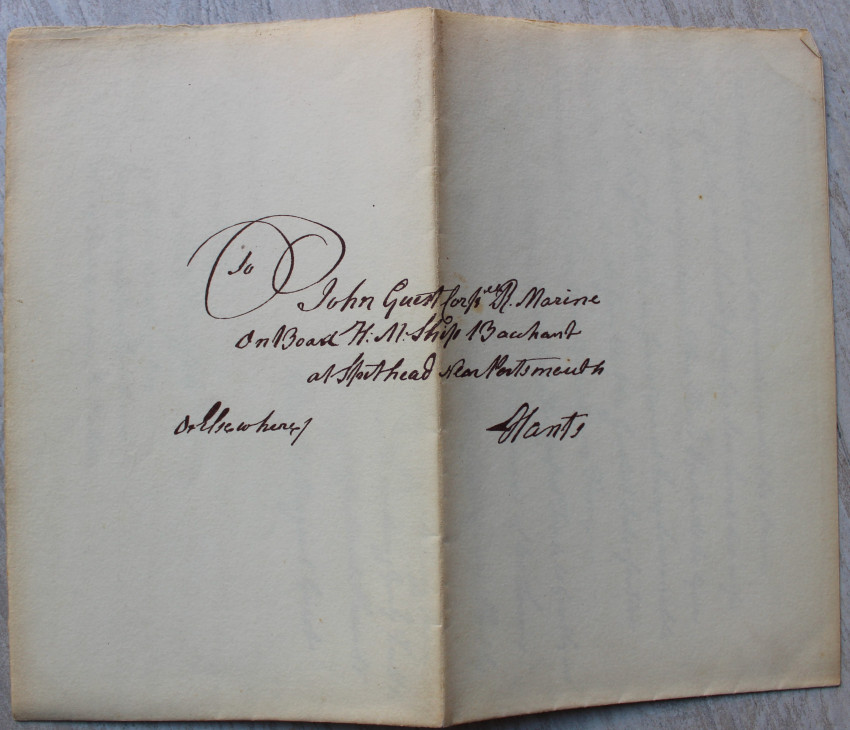 To
John Guest Corp^al R. Marine
On Board H: M: Ship Bacchant
at Spithead Near Portsmouth
Or Elsewhere/ Hants